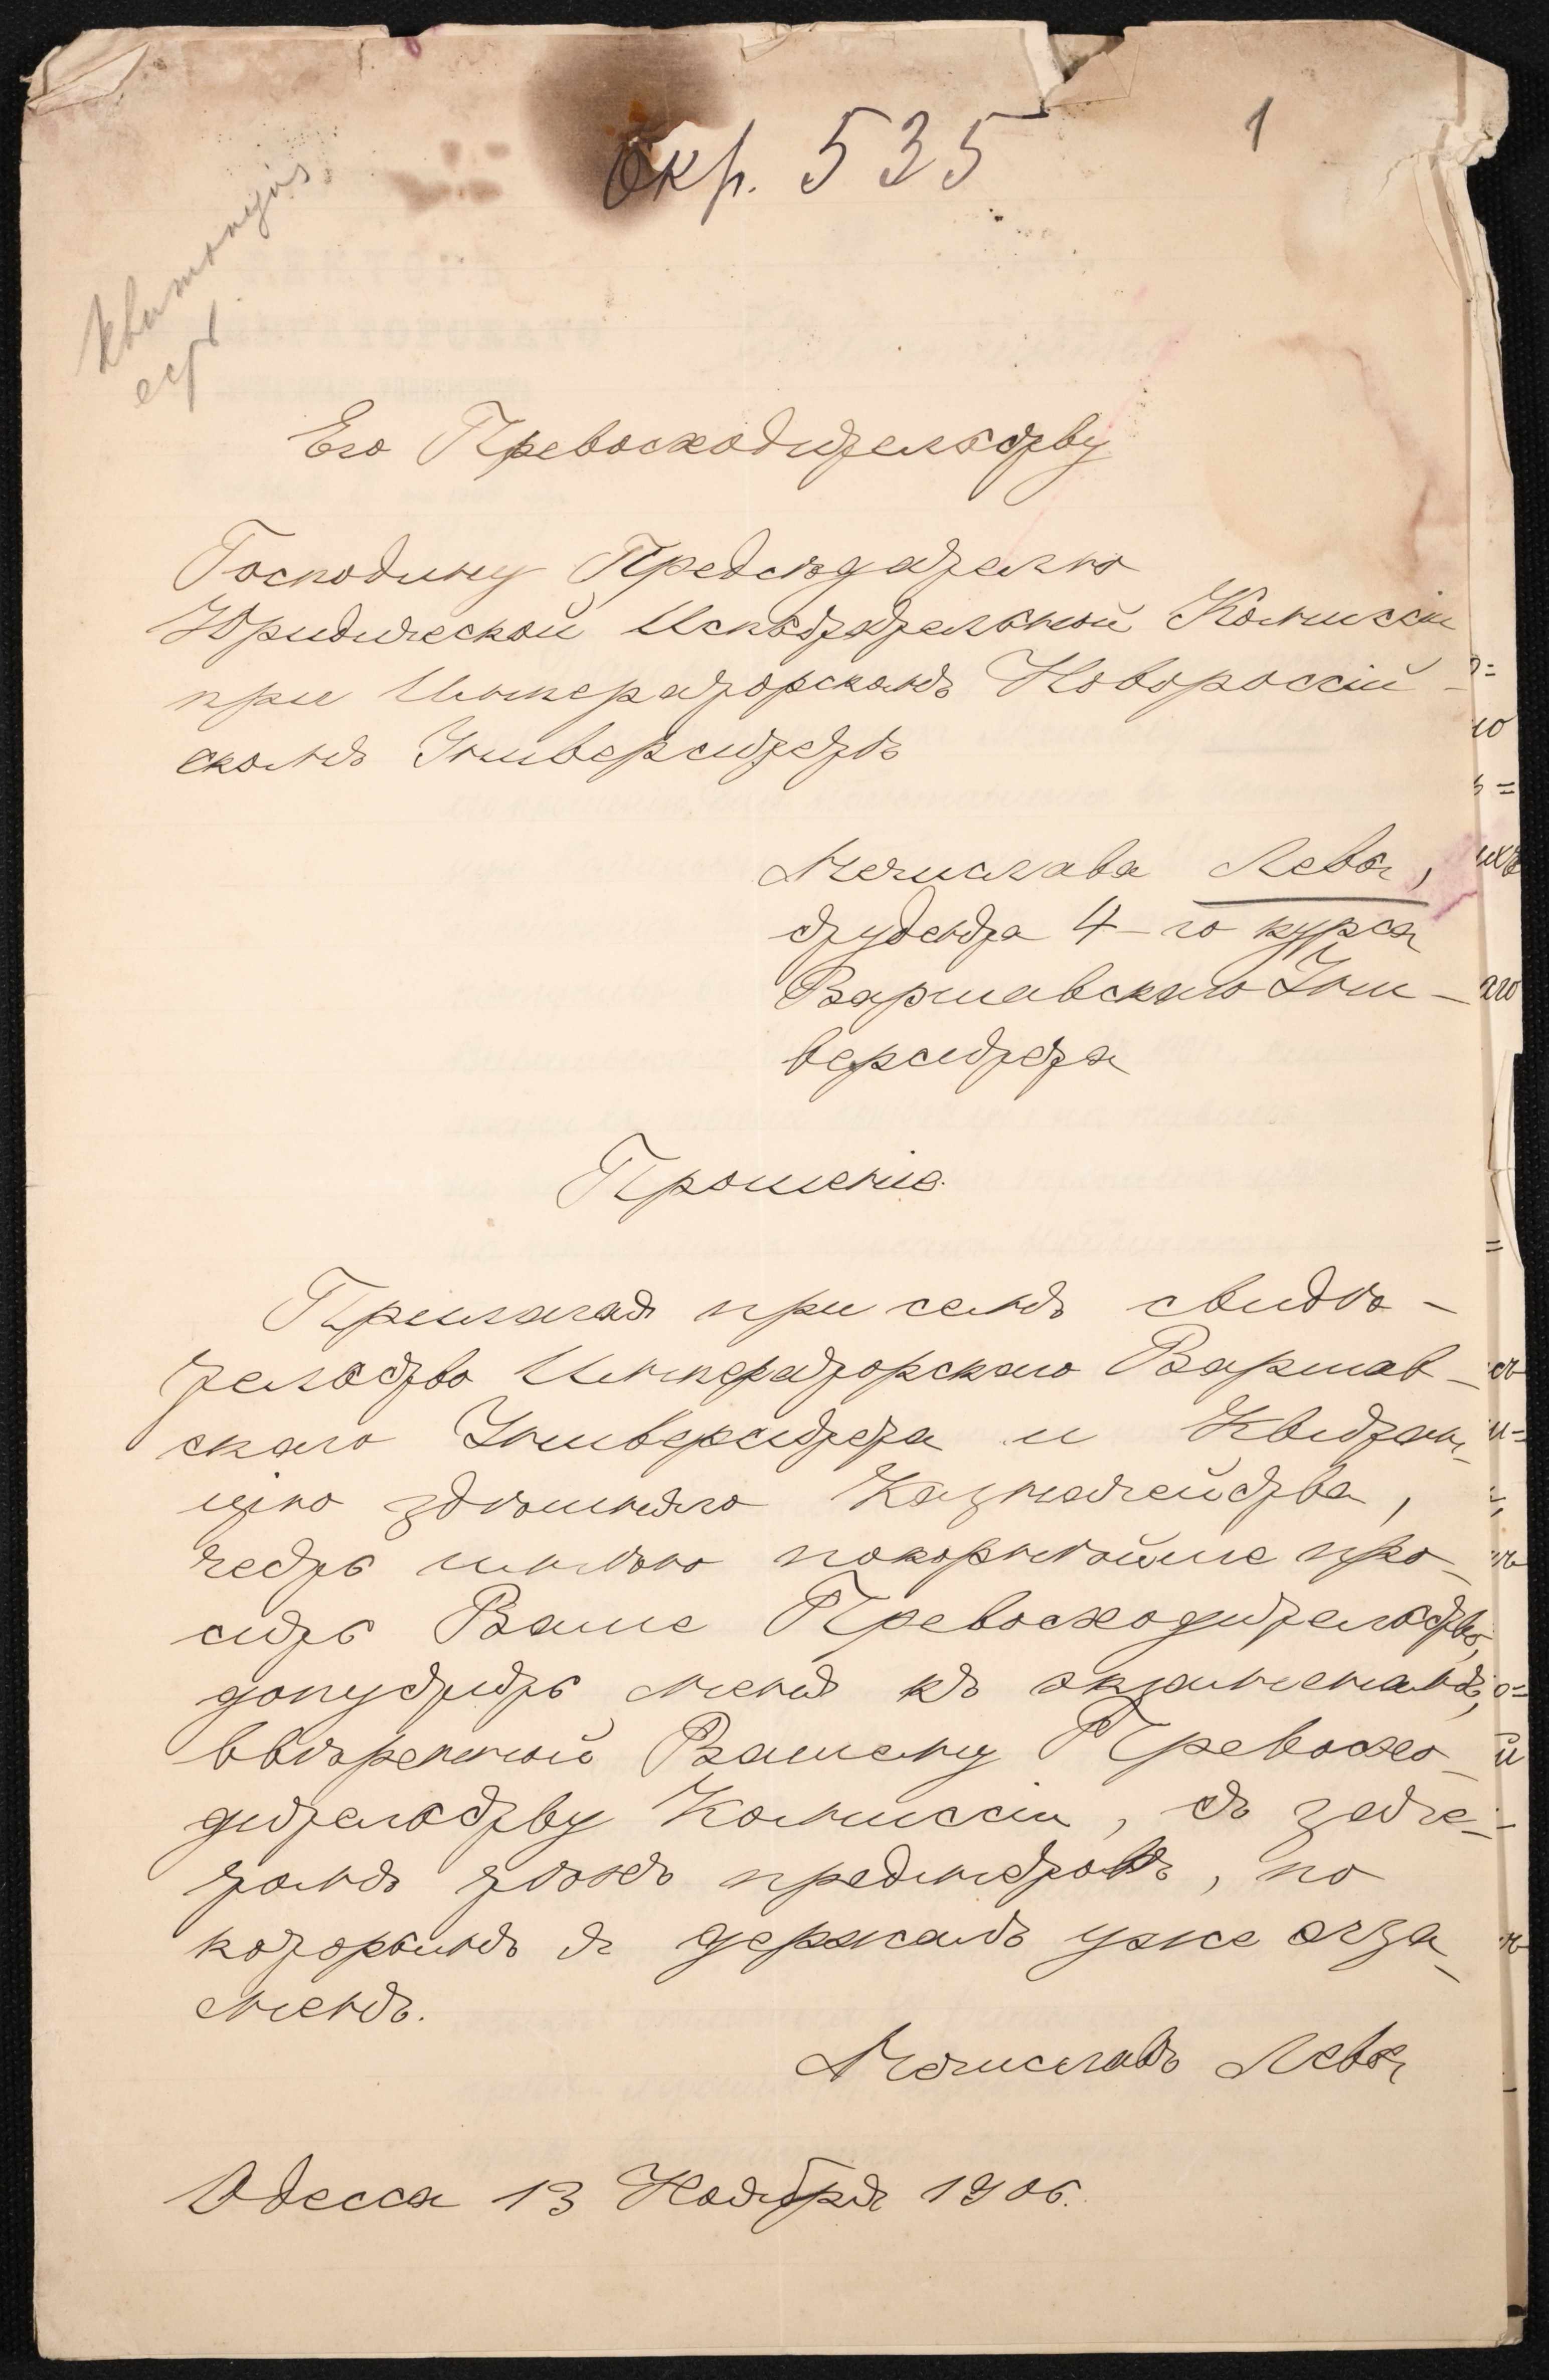 Окр. 535
1
Его Превосходительству
Господину Предсѣдателю
Юридической Испытательной Комиссіи
при Императорскомъ Новороссій-
скомъ Университетѣ
Мечислава Левы,
студента 4-го курса
Варшавскаго Уни-
верситета
Прошеніе.
Прилагая при семъ свидѣ-
тельство Императорскаго Варшав-
скаго Университета и Квитан-
цію здѣшняго Казначейства,
честь имѣю покорнѣйше про-
сить Ваше Превосходительство,
допустить меня къ экзаменамъ,
ввѣренной Вашему Превосхо-
дительству Комиссіи, съ заче-
томъ тѣхъ предметовъ, по
которымъ я держалъ уже экза-
менъ.
Мечиславъ Левы
Одесса 13 Ноября 1906.